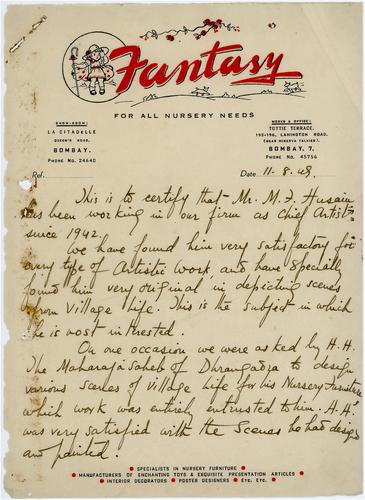 Fantasy
FOR ALL NURSERY NEEDS
SHOW-ROOM:
LA CITADELLE
QUEEN'S ROAD,
BOMBAY.
PHONE NO. 24640
WORKS & OFFICE:
TOTTIE TERRACE,
192-196, LAMINGTON ROAD,
(NEAR MINERVA TALKIES),
BOMBAY, 7.
PHONE NO. 45756
Ref.
Date 11.8.49.
This is to certify that Mr. M. F. Husain
has been working in our firm as Chief Artist
since 1942.
We have found him very satisfactory for
every type of Artistic work, and have specially
found him very original in depicting scenes
from Village Life. This is the subject in which
he is most intrested.
On one occasion we were asked by H. H.
The Maharaja Saheb of Dhrangadra to design
various scenes of Village Life for his Nursery Furniture
which work was entirely entrusted to him. H. H.
was very satisfied with the Scenes he had designed
and painted.
• SPECIALISTS IN NURSERY FURNITURE •
• MANUFACTURERS OF ENCHANTING TOYS & EXQUISITE PRESENTATION ARTICLES •
• INTERIOR DECORATORS • POSTER DESIGNERS • ETC. ETC. •